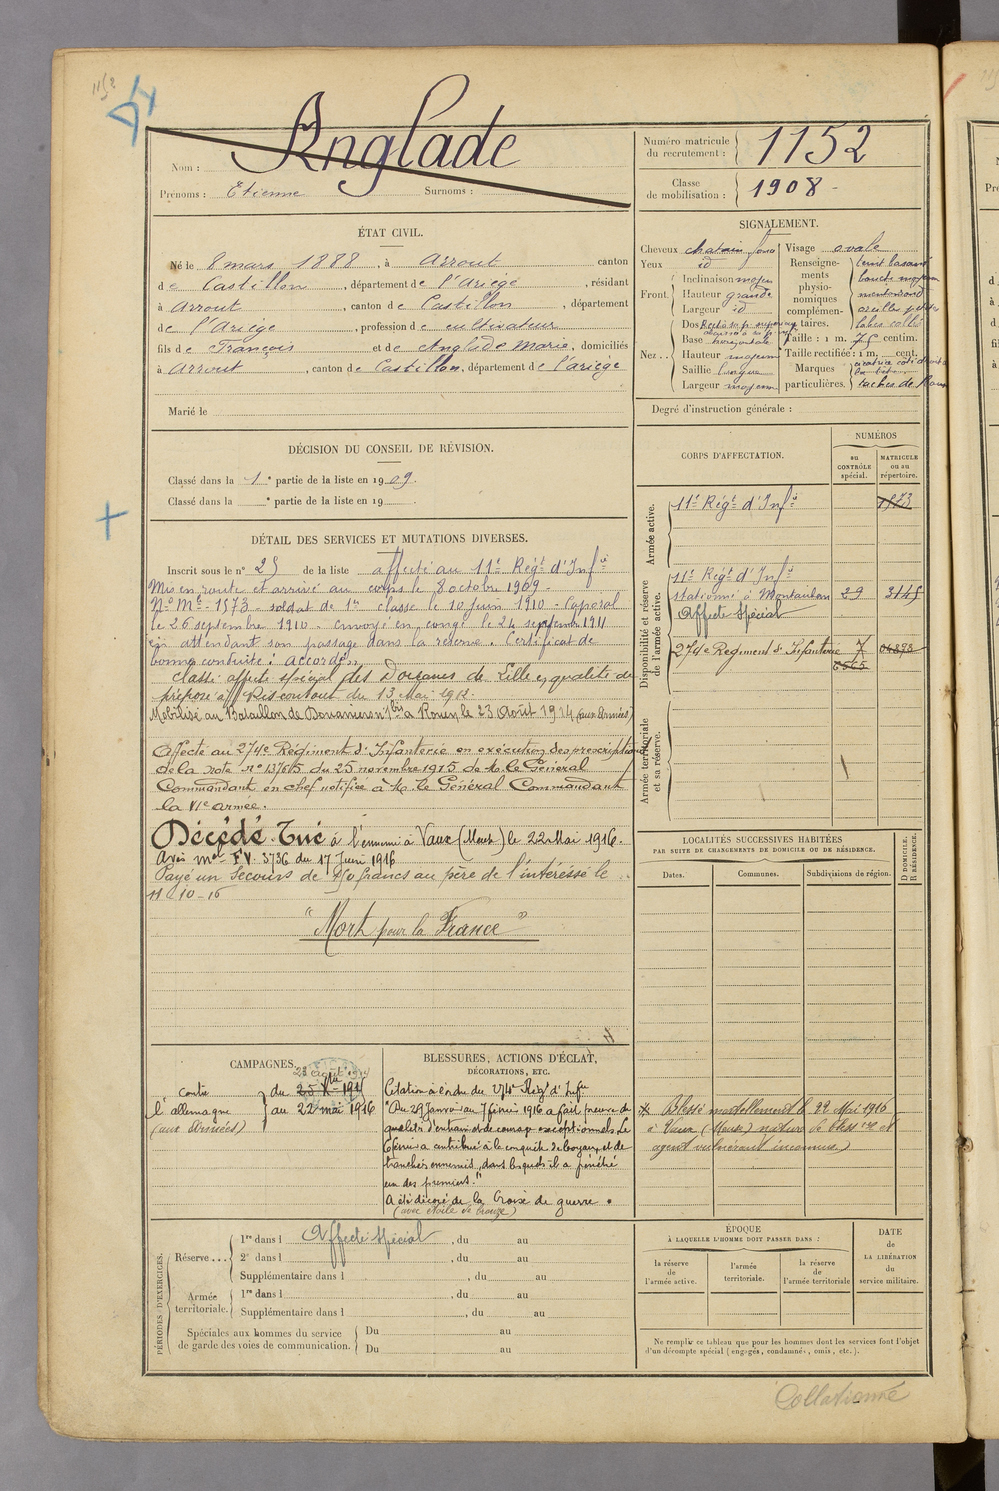 1152
Anglade
Nom :
Prénoms : Etienne Surnoms :
Numéro matricule du recrutement : 1152
Classe de mobilisation : 1908
ÉTAT CIVIL.
Né le 8 mars 1888, à Arrout canton
de Castillon, département de l'Ariège, résidant
à Arrout, canton de Castillon, département
de l'Ariège, profession de cultivateur
fils de François et de Anglade Marie, domiciliés
à Arrout, canton de Castillon, département de l'Ariège
Marié le
SIGNALEMENT.
Cheveux chatain foncé
Yeux id
Front. Inclinaison moyen
Hauteur grande
Largeur id
Nez... Dos
Base horizontale
Hauteur moyenne
Saillie longue
Largeur moyenne
Visage ovale
Renseignements physionomiques complémentaires. teint basané
bouche moyenne
menton rond
oreilles petites
lobes collés
Taille : 1 m. centim.
Taille rectifiée : 1 m. cent.
Marques particulières. cicatrice coté droit
taches de
Degré d'instruction générale :
DÉCISION DU CONSEIL DE RÉVISION.
Classé dans la 1e partie de la liste en 1909.
Classé dans la e partie de la liste en 19
DÉTAIL DES SERVICES ET MUTATIONS DIVERSES.
Inscrit sous le n° 25 de la liste affecté au 11e Régt d'Infie
Mis en route et arrivé au corps le 8 octobre 1909.
N° Mle 1573 - soldat de 1re classe le 10 juin 1910 - Caporal
le 26 septembre 1910 - envoyé en congé le 24 septembre 1911
en attendant son passage dans la réserve. Certificat de
bonne conduite : accordé.
Classé affecté spécial des Douanes de Lille en qualité de
préposé à Riscontout du 13 Mai 1912.
Mobilisé au Bataillon de Douaniers n° 1 bis à Rouen le 23 Août 1914 (aux Armées)
Affecté au 274e Régiment d'Infanterie en exécution des prescriptions
de la note n° 13766 du 25 novembre 1915 de M. le Général
Commandant en chef notifiée à M. le Général Commandant
la VIe armée.
Décédé. Tué à l'ennemi à Vaux (Meuse) le 22 Mai 1916.
Avis mel F.V. 3736 du 17 Juin 1916
Payé un secours de 150 francs au père de l'intéressé le
11-10-16
"Mort pour la France"
CORPS D'AFFECTATION.
NUMÉROS
au CONTRÔLE spécial.
MATRICULE ou au répertoire.
Armée active.
11e Régt d'Infie 1573
Disponibilité et réserve de l'armée active.
11e Régt d'Infie
stationné à Montauban 29 3145
Affecté Spécial
274e Régiment d'Infanterie 7
6565
Armée territoriale et sa réserve.
LOCALITÉS SUCCESSIVES HABITÉES
PAR SUITE DE CHANGEMENTS DE DOMICILE OU DE RÉSIDENCE.
Dates.
Communes.
Subdivisions de région.
D DOMICILE. R RÉSIDENCE.
CAMPAGNES.
23 Août 1914
contre l'allemagne (aux Armées)
du 25 X 1915
au 22 mai 1916
BLESSURES, ACTIONS D'ÉCLAT,
DÉCORATIONS, ETC.
Citation à l'ordre du 274e Régt d'Infie
"Du 29 Janvier au 7 février 1916 a fait preuve de
qualités d'entrain et de courage exceptionnels. Le
février a contribué à la conquête de boyaux et de
tranchées ennemies, dans lesquels il a pénétré
un des premiers."
A été décoré de la Croix de guerre.
(avec étoile de bronze)
Blessé mortellement le 22 Mai 1916
à Vaux (Meuse) nature de blessure et
agent vulnérant inconnus)
PÉRIODES D'EXERCICES.
Réserve... 1re dans l Affecté Spécial, du au
2e dans l, du au
Supplémentaire dans l, du au
Armée territoriale. 1re dans l, du au
Supplémentaire dans l, du au
Spéciales aux hommes du service de garde des voies de communication. Du au
Du au
ÉPOQUE
À LAQUELLE L'HOMME DOIT PASSER DANS :
la réserve de l'armée active.
l'armée territoriale.
la réserve de l'armée territoriale
DATE de LA LIBÉRATION du service militaire.
Ne remplir ce tableau que pour les hommes dont les services font l'objet
d'un décompte spécial (engagés, condamnés, omis, etc.).
Collationné